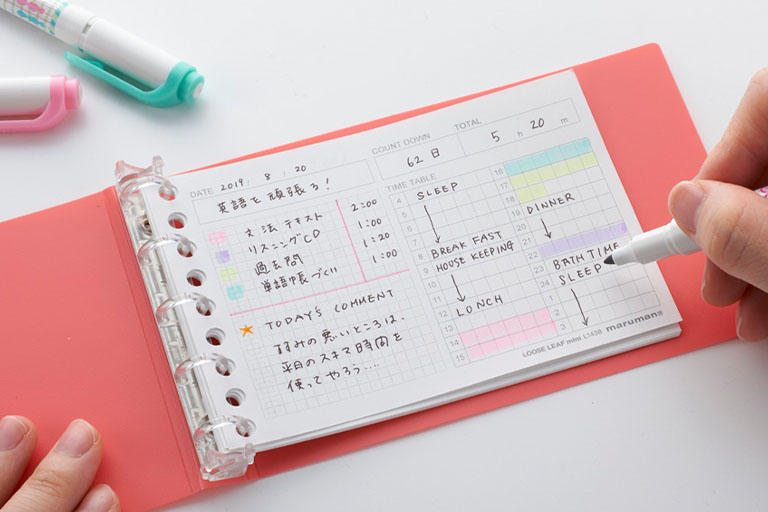 DATE 2019 / 8 / 20
COUNT DOWN
62日
TOTAL
5 h 20 m
英語を頑張ろ!
文法テキスト 2:00
リスニングCD 1:00
過去問 1:20
単語帳づくり 1:00
TODAY'S COMMENT
すすみの悪いところは、
平日のスキマ時間を
使ってやろう…
TIME TABLE
4 SLEEP
5
6
7
8 BREAK FAST
9 HOUSE KEEPING
10
11
12 LONCH
13
14
15
16
17
18
19 DINNER
20
21
22
23 BATH TIME
24 SLEEP
1
2
3
LOOSE LEAF mini L1438 maruman®